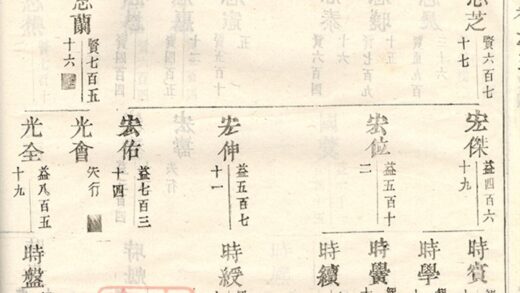 芝
賢六百七
十七
蘭
賢七百五
十六
宏傑
益四百六
十九
宏位
益五百十
二
宏仲
益五百七
十一
宏佑
益七百三
十四
光會
失行
光全
益八百五
十九
時賓
時學
時黌
時續
時綬
時盤